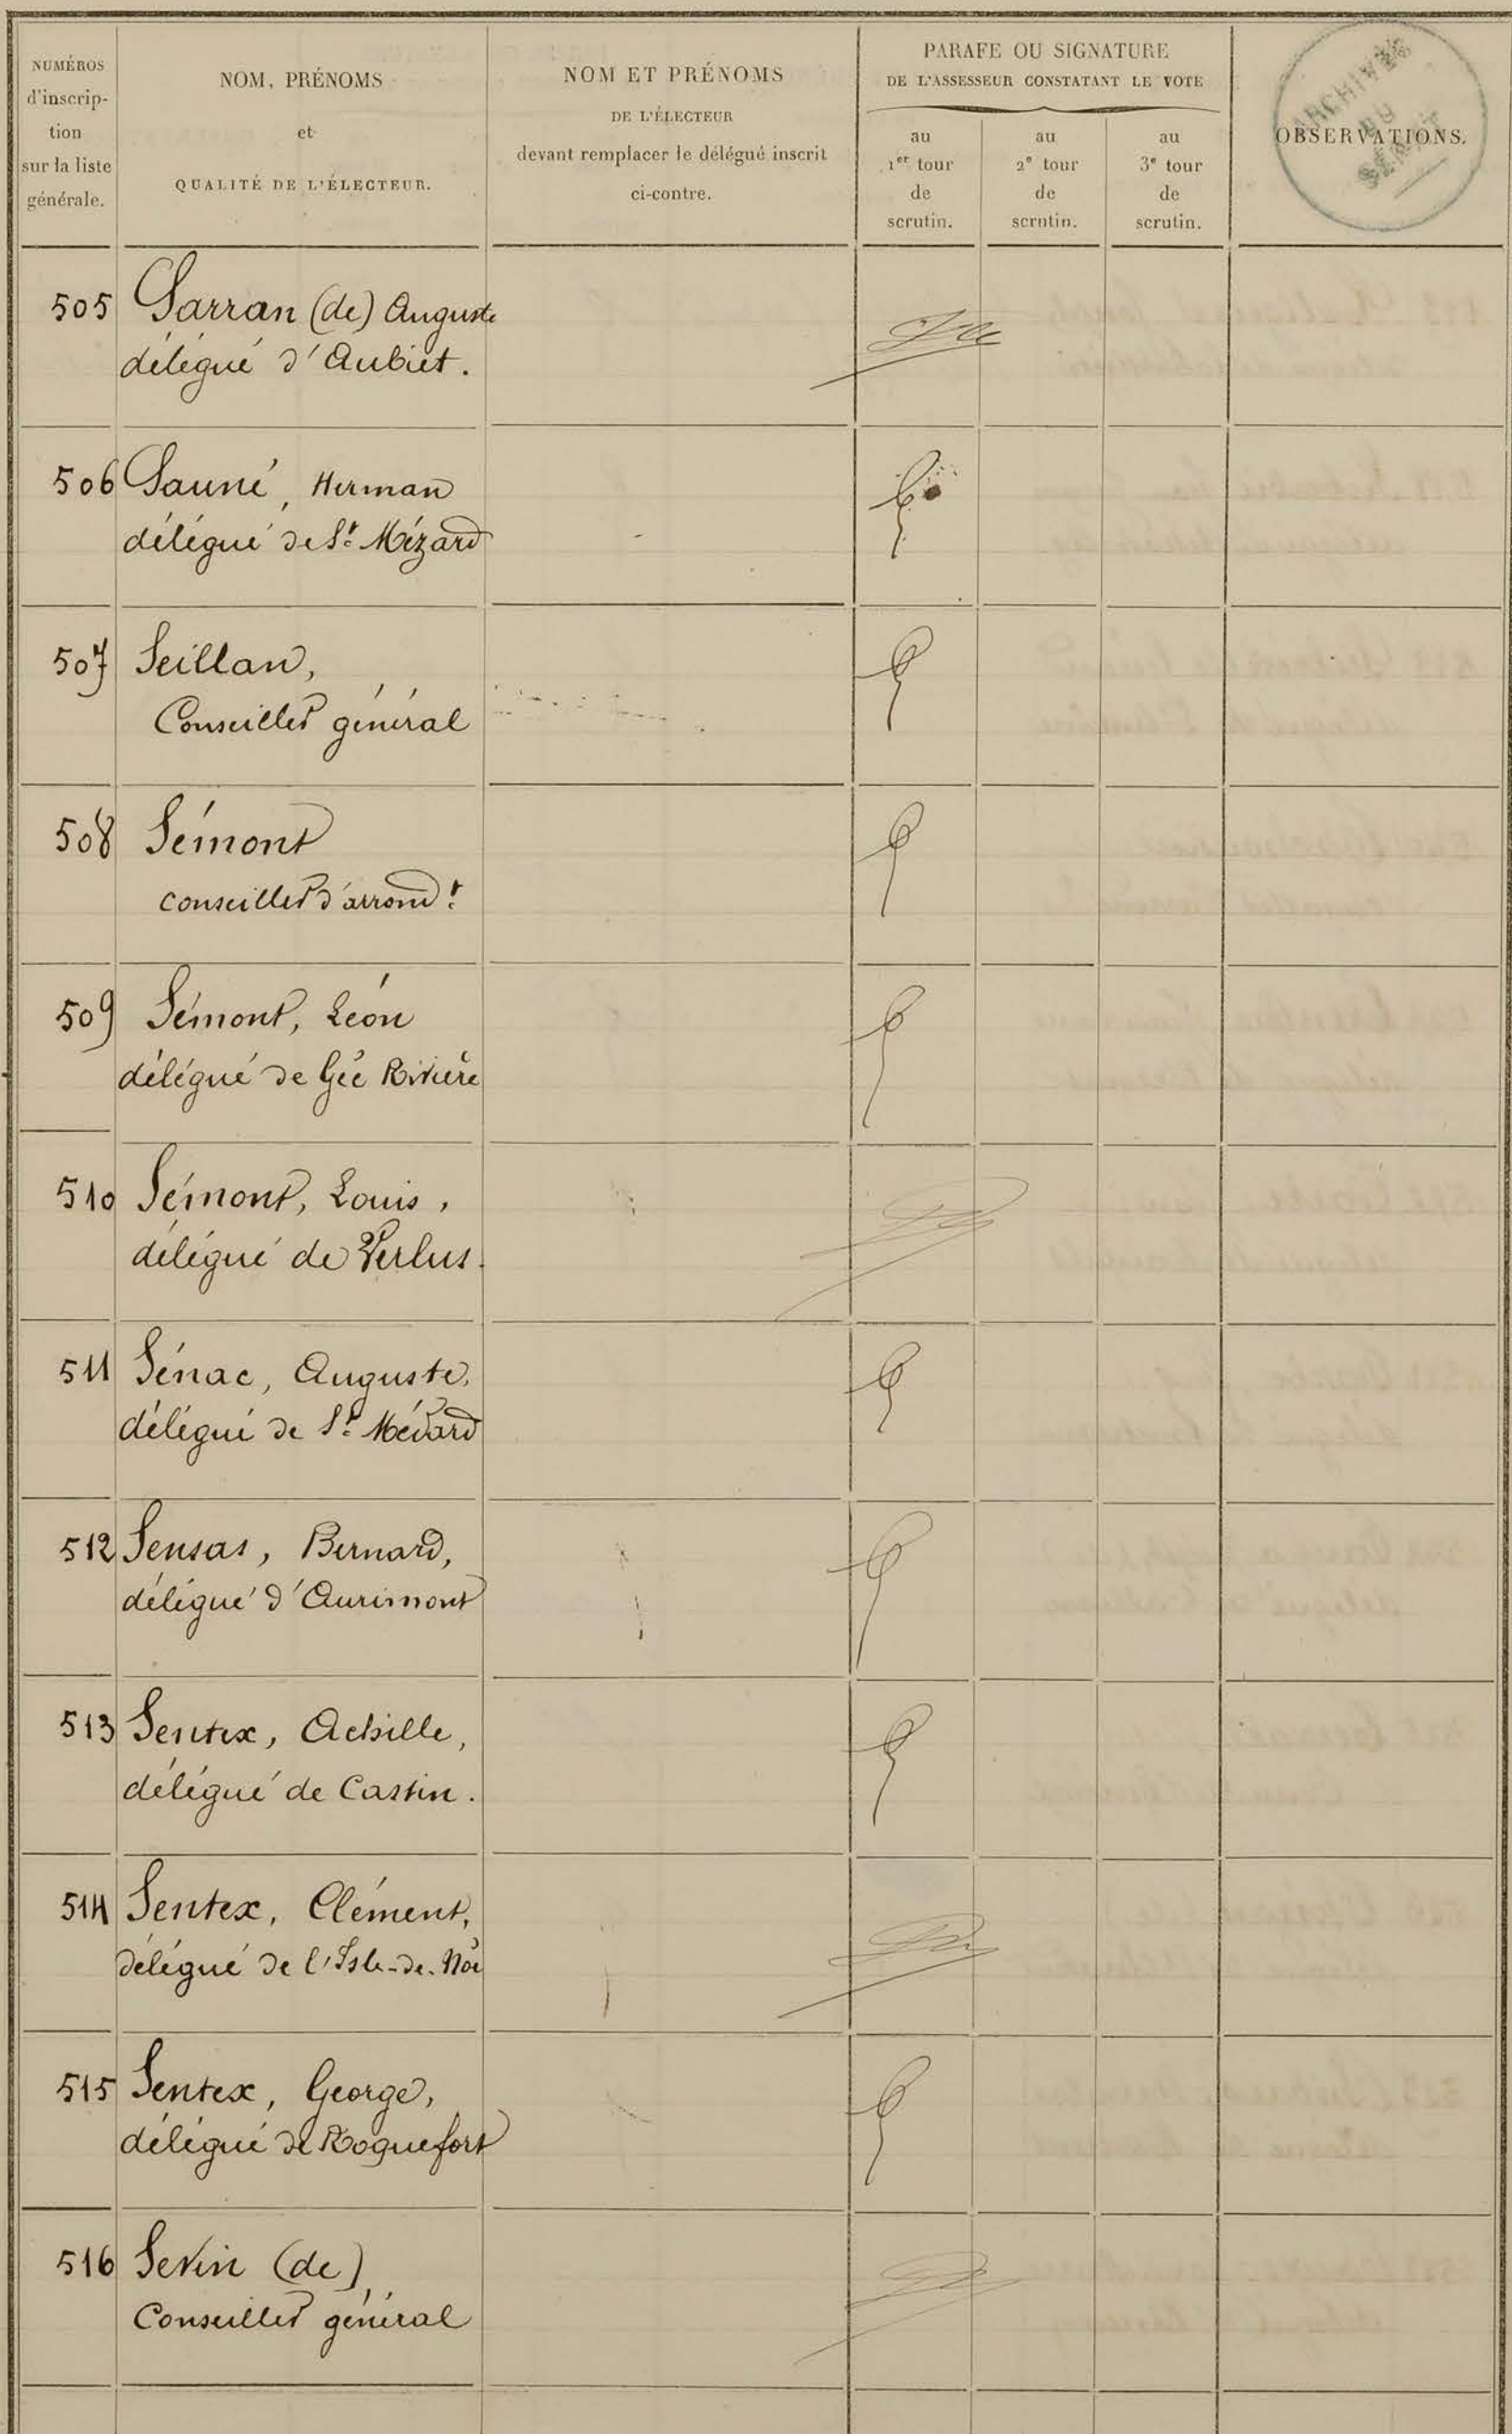 NUMÉROS
d'inscrip-
tion
sur la liste
générale.
NOM, PRÉNOMS
et
QUALITÉ DE L'ÉLECTEUR.
NOM ET PRÉNOMS
DE L'ÉLECTEUR
devant remplacer le délégué inscrit
ci-contre.
PARAFE OU SIGNATURE
DE L'ASSESSEUR CONSTATANT LE VOTE
au
1er tour
de
scrutin.
au
2e tour
de
scrutin.
au
3e tour
de
scrutin.
OBSERVATIONS.
ARCHIVES
DU
SÉNAT
505 Sarran (de) Auguste
délégué d'Aubiet.
506 Sauné, Herman
délégué de St. Mézard
507 Seillan,
Conseiller général
508 Sémont
conseiller d'arrondt.
509 Sémont, Léon
délégué de Gée Rivière
510 Sémont, Louis,
délégué de Verlus.
511 Sénac, Auguste,
délégué de St. Médard
512 Sensas, Bernard,
délégué d'Aurimont
513 Sentex, Achille,
délégué de Castin.
514 Sentex, Clément,
délégué de l'Isle-de-Noé
515 Sentex, George,
délégué de Roquefort
516 Sevin (de),
Conseiller général